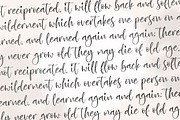 t reciprocated, it will flow back and soften
ewilderment which overtakes one person on
and, and learned again and again.
la never grow old they may die of old age,
t reciprocated, it will flow back and soft
ewilderment, which overtakes one person on
and, and learned again and again: there
la never grow old they may die of old